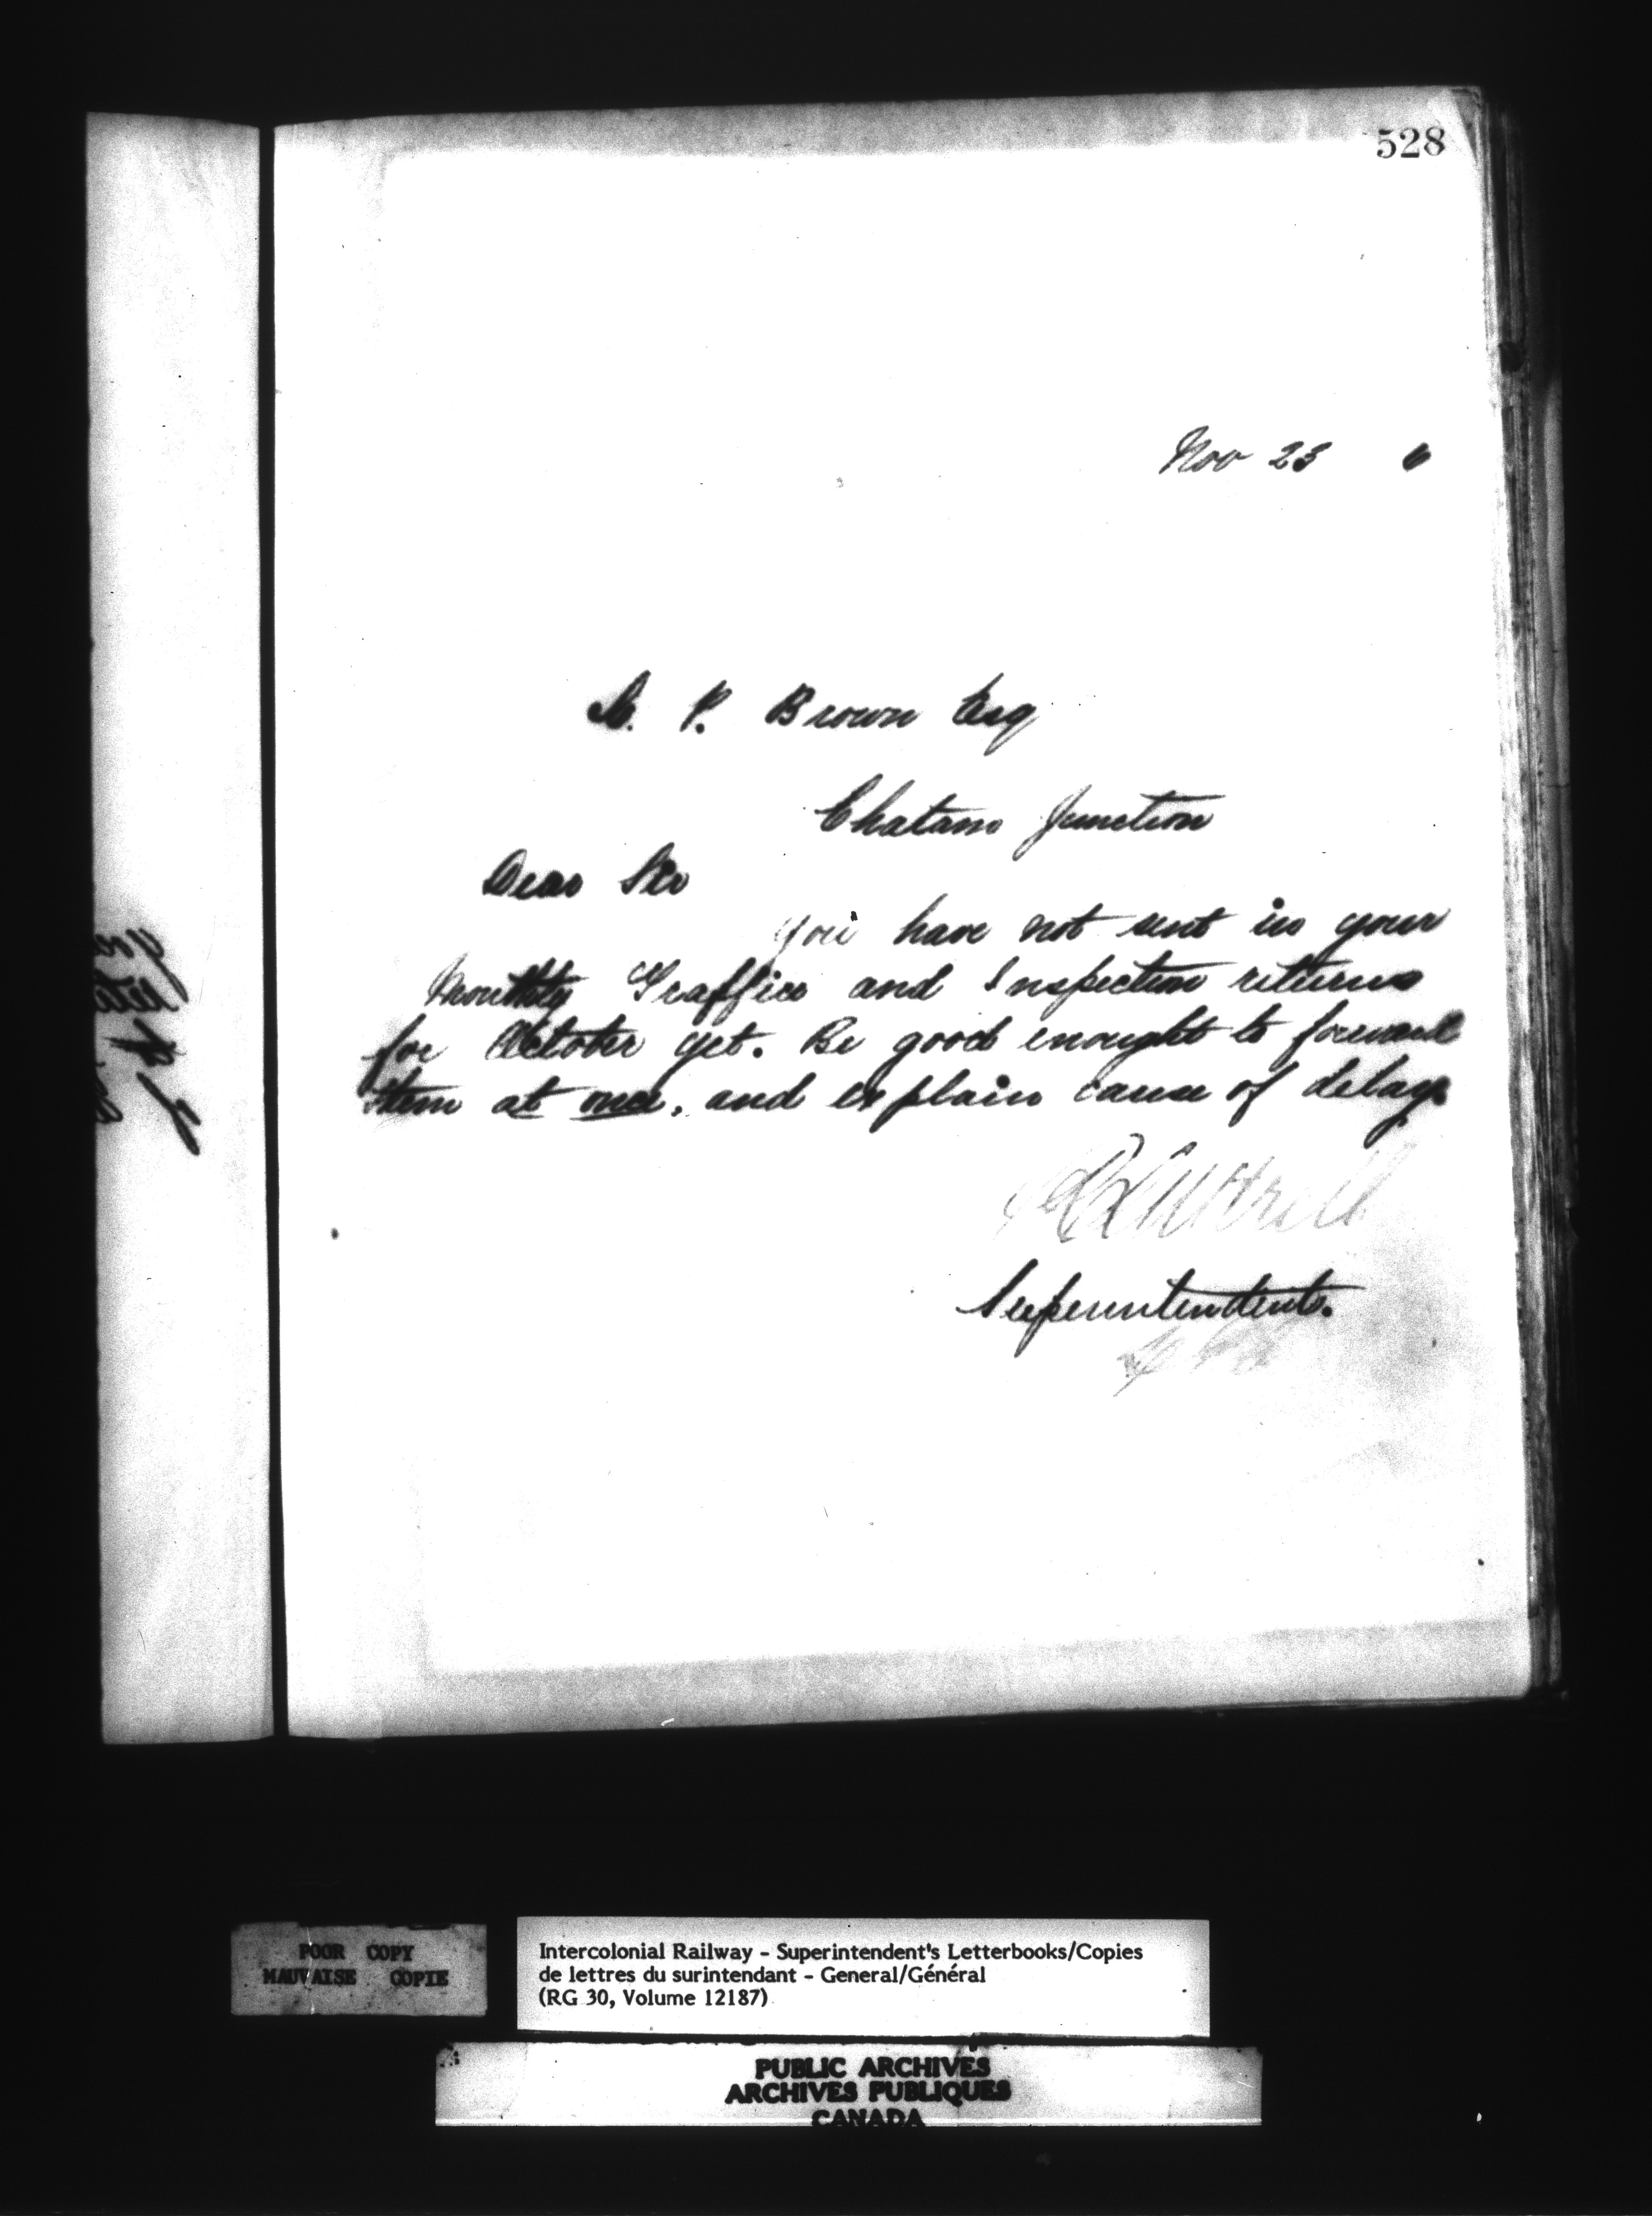 528
Nov 23 6
P. Brown Esq
Chatam Junction
Dear Sir
You have not sent in your
Monthly Traffice and Inspection returns
for October yet. Be good enought to forward
them at once, and explain cause of delay.
Superintendent.
POOR COPY
MAUVAISE COPIE
Intercolonial Railway - Superintendent's Letterbooks/Copies
de lettres du surintendant - General/Général
(RG 30, Volume 12187)
PUBLIC ARCHIVES
ARCHIVES PUBLIQUES
CANADA